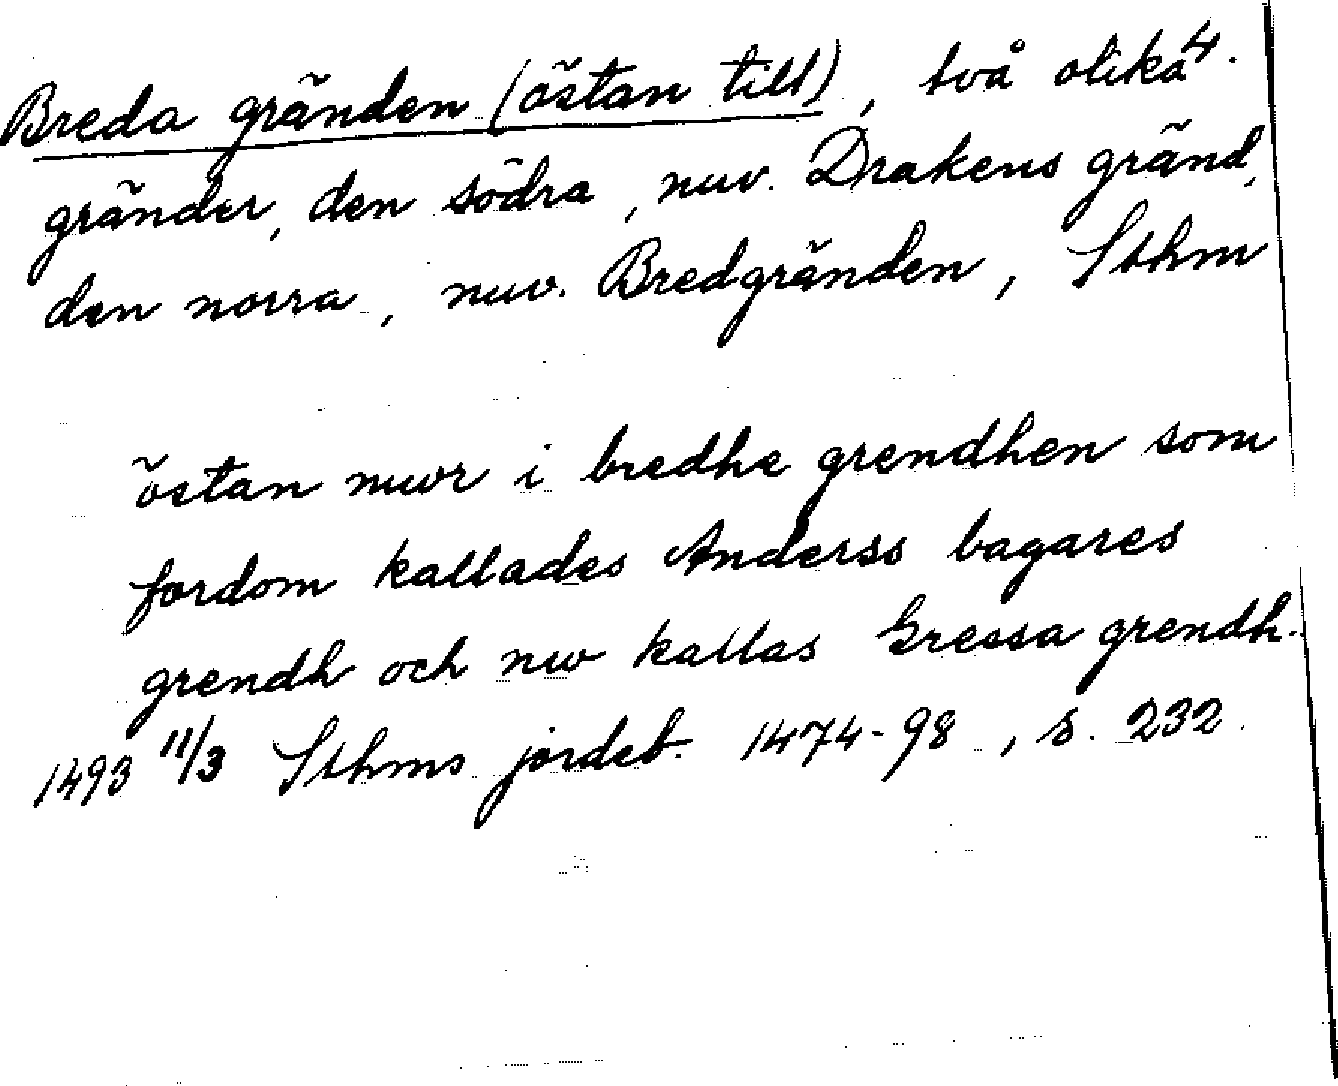 Breda gränden (östan till), två olika 4.
gränder, den södra, nuv. Drakens gränd,
den norra, nuv. Bredgränden, Sthm
östan mwr i bredhe grendhen som
fordom kallades Anderss bagares
grendh och nw kallas Gressa grendh.
1493 11/3 Sthms jordeb. 1474-98, s. 232.